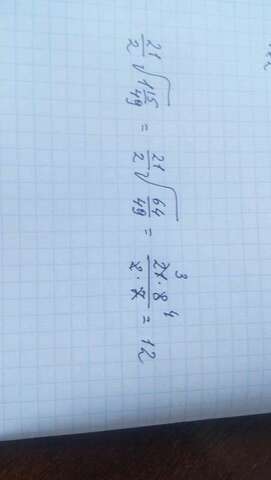 21/2 √(1 15/49) = 21/2 √(64/49) = (21 · 8)/(2 · 7) = 12
3 4